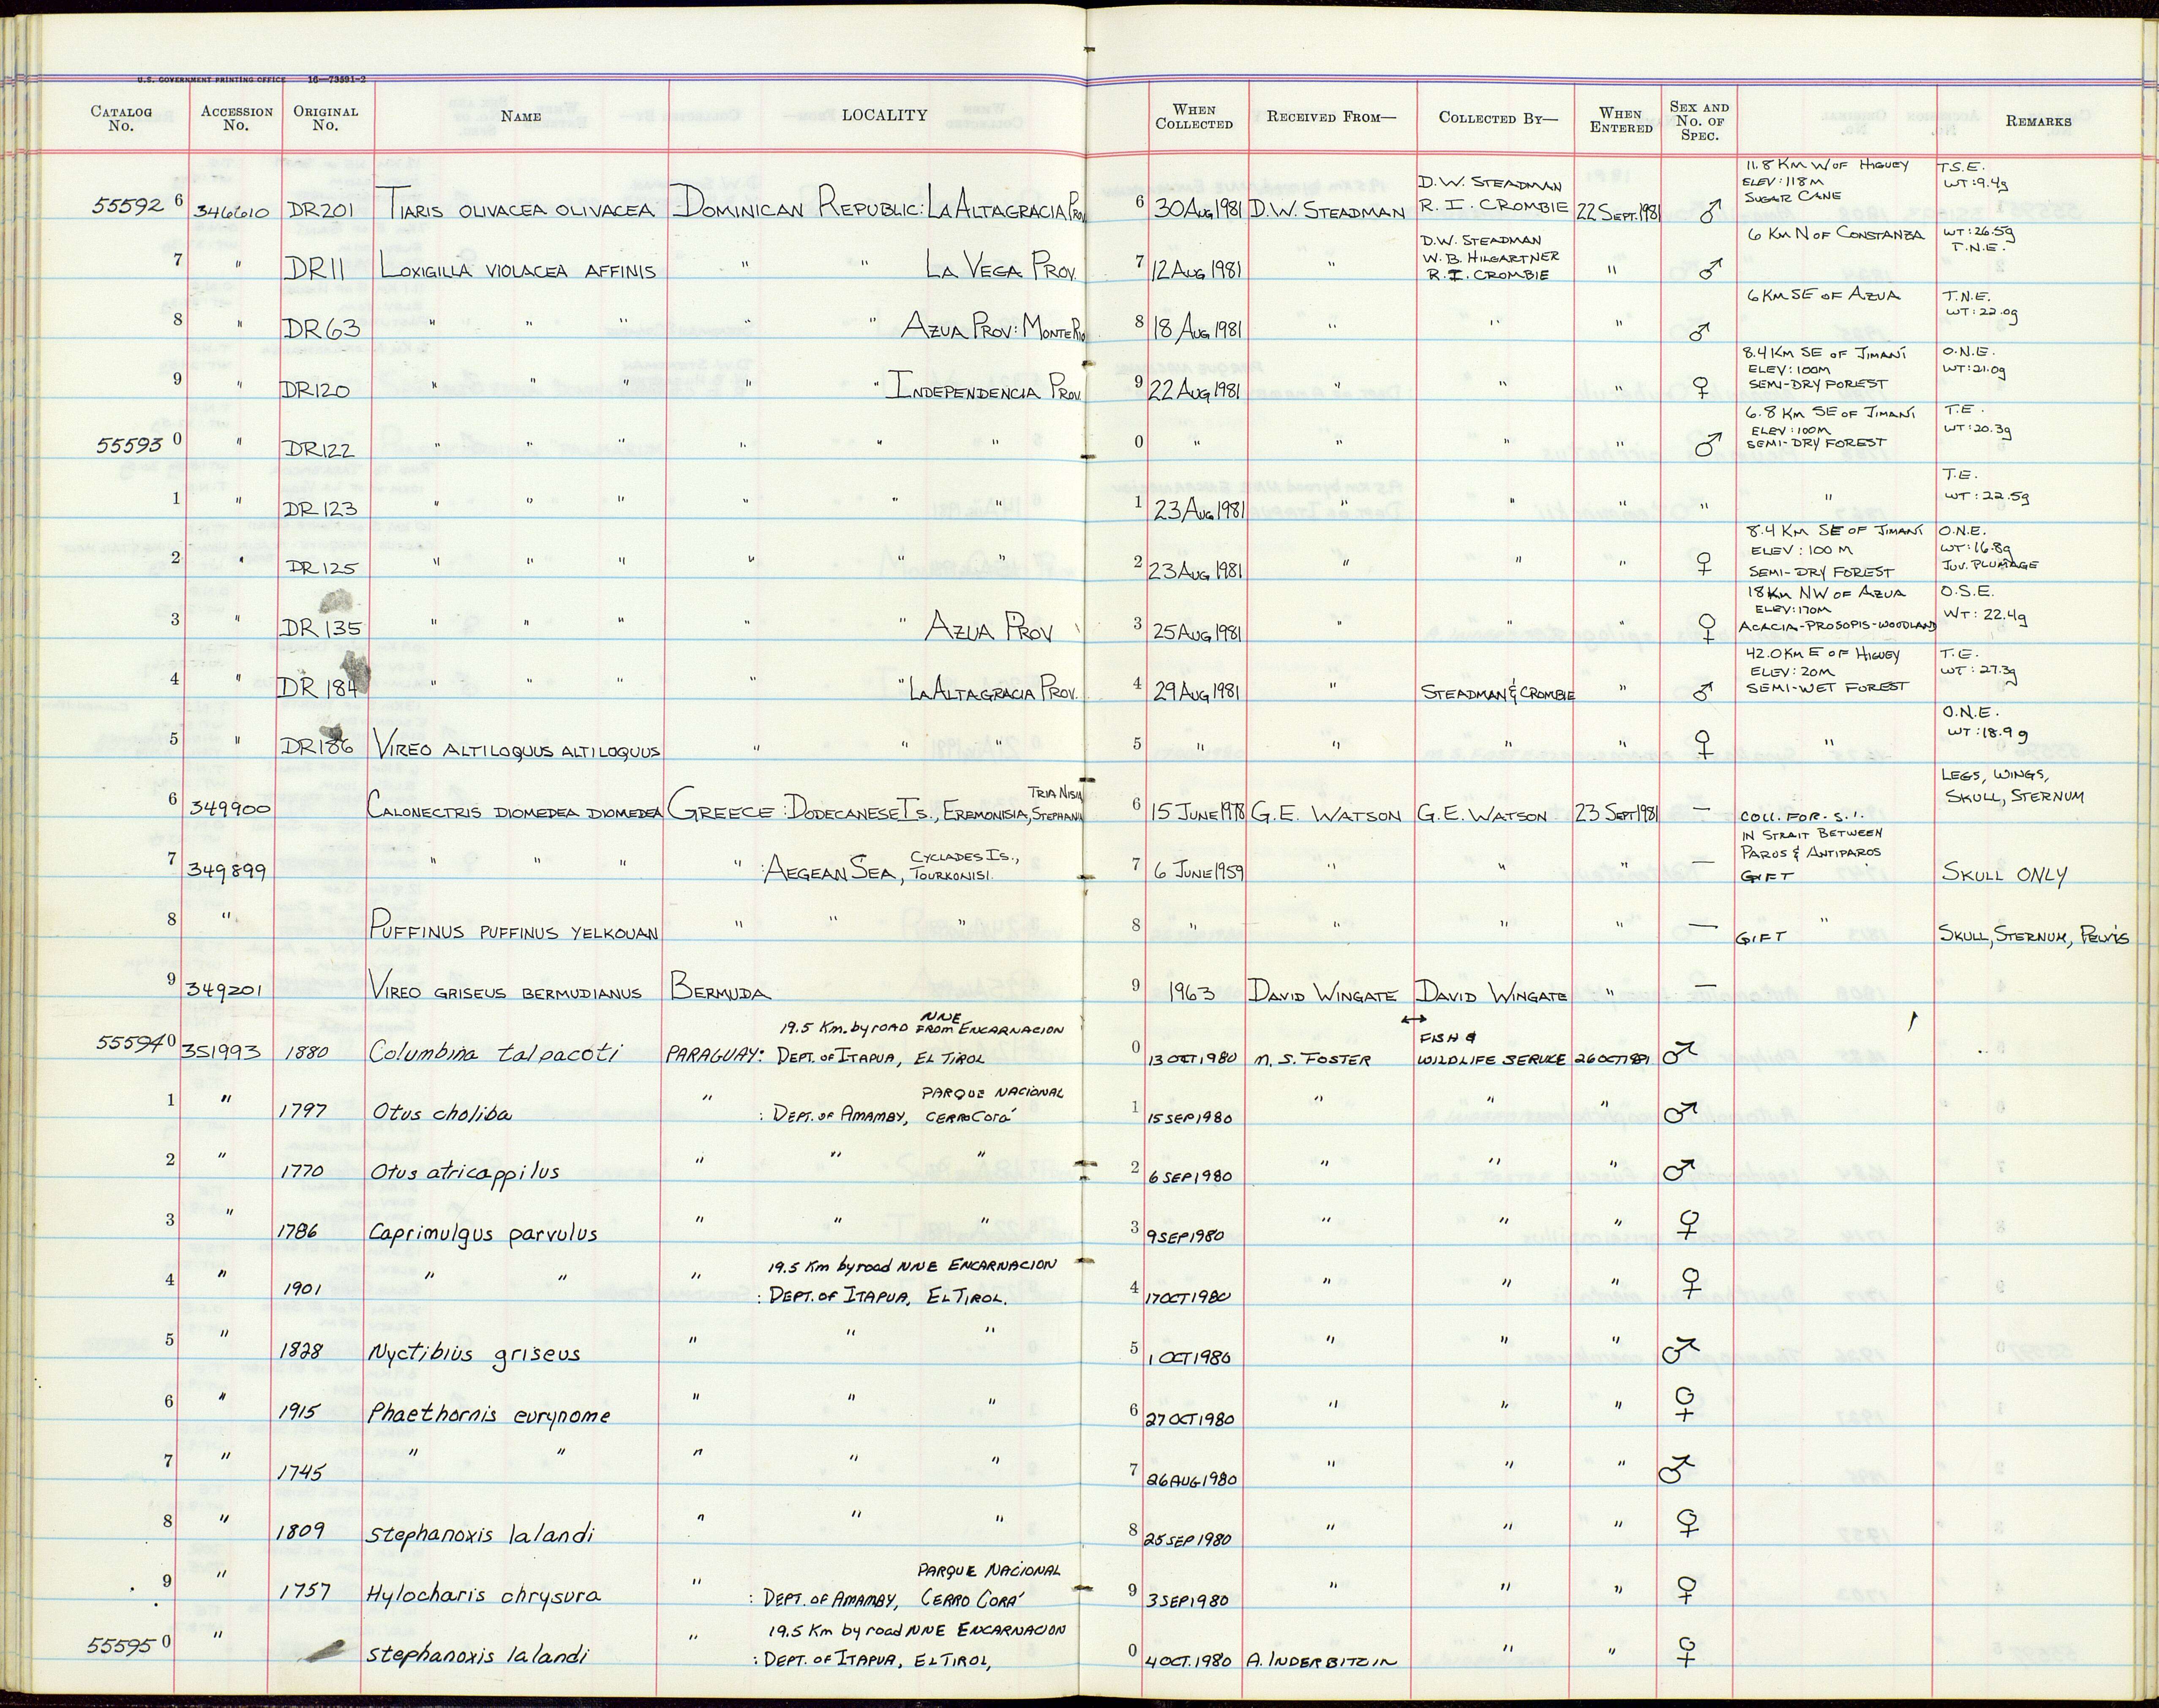 U.S. GOVERNMENT PRINTING OFFICE 16—73591-2
CATALOG No. ACCESSION No. ORIGINAL No. NAME LOCALITY WHEN COLLECTED RECEIVED FROM— COLLECTED BY— WHEN ENTERED SEX AND No. OF SPEC. REMARKS
55592 6 346610 DR201 TIARIS OLIVACEA OLIVACEA DOMINICAN REPUBLIC: LA ALTAGRACIA PROV 6 30 AUG 1981 D.W. STEADMAN D.W. STEADMAN R. I. CROMBIE 22 SEPT. 1981 ♂ 11.8 KM W OF HIGUEY ELEV: 118 M SUGAR CANE T.S.E. WT: 9.4g
7 " DR11 LOXIGILLA VIOLACEA AFFINIS " " LA VEGA PROV. 7 12 AUG 1981 " D.W. STEADMAN W.B. HILGARTNER R. I. CROMBIE " ♂ 6 KM N OF CONSTANZA WT: 26.5g T.N.E.
8 " DR63 " " " " " AZUA PROV: MONTE RIO 8 18 AUG 1981 " " " ♂ 6 KM SE OF AZUA T.N.E. WT: 22.0g
9 " DR120 " " " " " INDEPENDENCIA PROV. 9 22 AUG 1981 " " " ♀ 8.4 KM SE OF JIMANÍ ELEV: 100M SEMI-DRY FOREST O.N.E. WT: 21.0g
55593 0 " DR122 " " " " " " 0 " " " " ♂ 6.8 KM SE OF JIMANÍ ELEV: 100M SEMI-DRY FOREST T.E. WT: 20.3g
1 " DR123 " " " " " " 1 23 AUG 1981 " " " " " T.E. WT: 22.5g
2 " DR125 " " " " " " 2 23 AUG 1981 " " " ♀ 8.4 KM SE OF JIMANÍ ELEV: 100 M SEMI-DRY FOREST O.N.E. WT: 16.8g JUV. PLUMAGE
3 " DR135 " " " " " AZUA PROV 3 25 AUG 1981 " " " ♀ 18 KM NW OF AZUA ELEV: 170M ACACIA-PROSOPIS-WOODLAND O.S.E. WT: 22.4g
4 " DR184 " " " " " LA ALTAGRACIA PROV. 4 29 AUG 1981 " STEADMAN & CROMBIE " ♂ 42.0 KM E OF HIGUEY ELEV: 20M SEMI-WET FOREST T.E. WT: 27.3g
5 " DR186 VIREO ALTILOQUUS ALTILOQUUS " " " 5 " " " " ♀ " O.N.E. WT: 18.9g
6 349900 CALONECTRIS DIOMEDEA DIOMEDEA GREECE: DODECANESE IS., EREMONISIA, TRIA NISIA STEPHANIA 6 15 JUNE 1978 G.E. WATSON G.E. WATSON 23 SEPT 1981 — COLL. FOR. S.I. LEGS, WINGS, SKULL, STERNUM
7 349899 " " " " : AEGEAN SEA, CYCLADES IS., TOURKONISI. 7 6 JUNE 1959 " " " — IN STRAIT BETWEEN PAROS & ANTIPAROS GIFT SKULL ONLY
8 " PUFFINUS PUFFINUS YELKOUAN " " " 8 " " " " — " GIFT SKULL, STERNUM, PELVIS
9 349201 VIREO GRISEUS BERMUDIANUS BERMUDA 9 1963 DAVID WINGATE DAVID WINGATE " —
55594 0 351993 1880 Columbina talpacoti PARAGUAY: DEPT. OF ITAPUA, 19.5 Km. by road NNE FROM ENCARNACION EL TIROL 0 13 OCT 1980 M. S. FOSTER ↔ FISH & WILDLIFE SERVICE 26 OCT 1981 ♂
1 " 1797 Otus choliba " : DEPT. OF AMAMBY, PARQUE NACIONAL CERRO Corá 1 15 SEP 1980 " " " ♂
2 " 1770 Otus atricappilus " " " 2 6 SEP 1980 " " " ♂
3 " 1786 Caprimulgus parvulus " " " 3 9 SEP 1980 " " " ♀
4 " 1901 " " " 19.5 Km by road NNE ENCARNACION : DEPT. OF ITAPUA, EL TIROL. 4 17 OCT 1980 " " " ♀
5 " 1828 Nyctibius griseus " " " 5 1 OCT 1980 " " " ♂
6 " 1915 Phaethornis eurynome " " " 6 27 OCT 1980 " " " ♀
7 " 1745 " " " " " 7 26 AUG 1980 " " " ♂
8 " 1809 Stephanoxis lalandi " " " 8 25 SEP 1980 " " " ♀
9 " 1757 Hylocharis chrysura " : DEPT. OF AMAMBY, PARQUE NACIONAL CERRO CORÁ 9 3 SEP 1980 " " " ♀
55595 0 " Stephanoxis lalandi " 19.5 Km by road NNE ENCARNACION : DEPT. OF ITAPUA, EL TIROL, 0 4 OCT. 1980 A. INDERBITZIN " " ♀